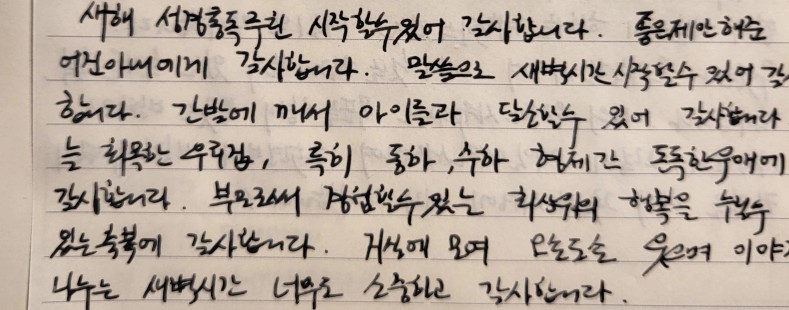 새해 성경통독 주헌 시작할수있어 감사합니다. 좋은제안해준
어진아씨에게 감사합니다. 말씀으로 새벽시간 시작할수 있어 감
합니다. 간밤에 깨서 아이들과 담소할수 있어 감사합니다
늘 화목한 우리집, 특히 동하, 수하 형제간 돈독한우애에
감사합니다. 부모로서 경험할수 있는 최상위의 행복을 누릴수
있는축복에 감사합니다. 거실에 모여 오손도손 웃으며 이야
나누는 새벽시간 너무도 소중하고 감사합니다.